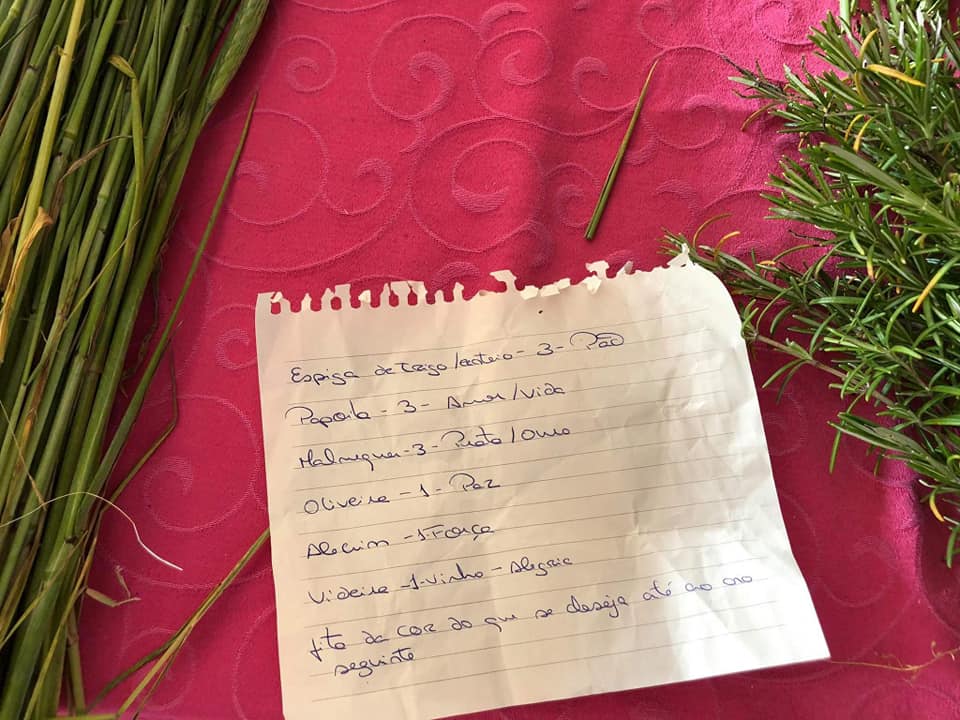 Espiga de Trigo/centeio - 3 - Pão
Papoila - 3 - Amor/Vida
Malmequer - 3 - Prata/Ouro
Oliveira - 1 - Paz
Alecrim - 1 - Força
Videira - 1 - Vinho - Alegria
fita da cor do que se deseja até ao ano
seguinte